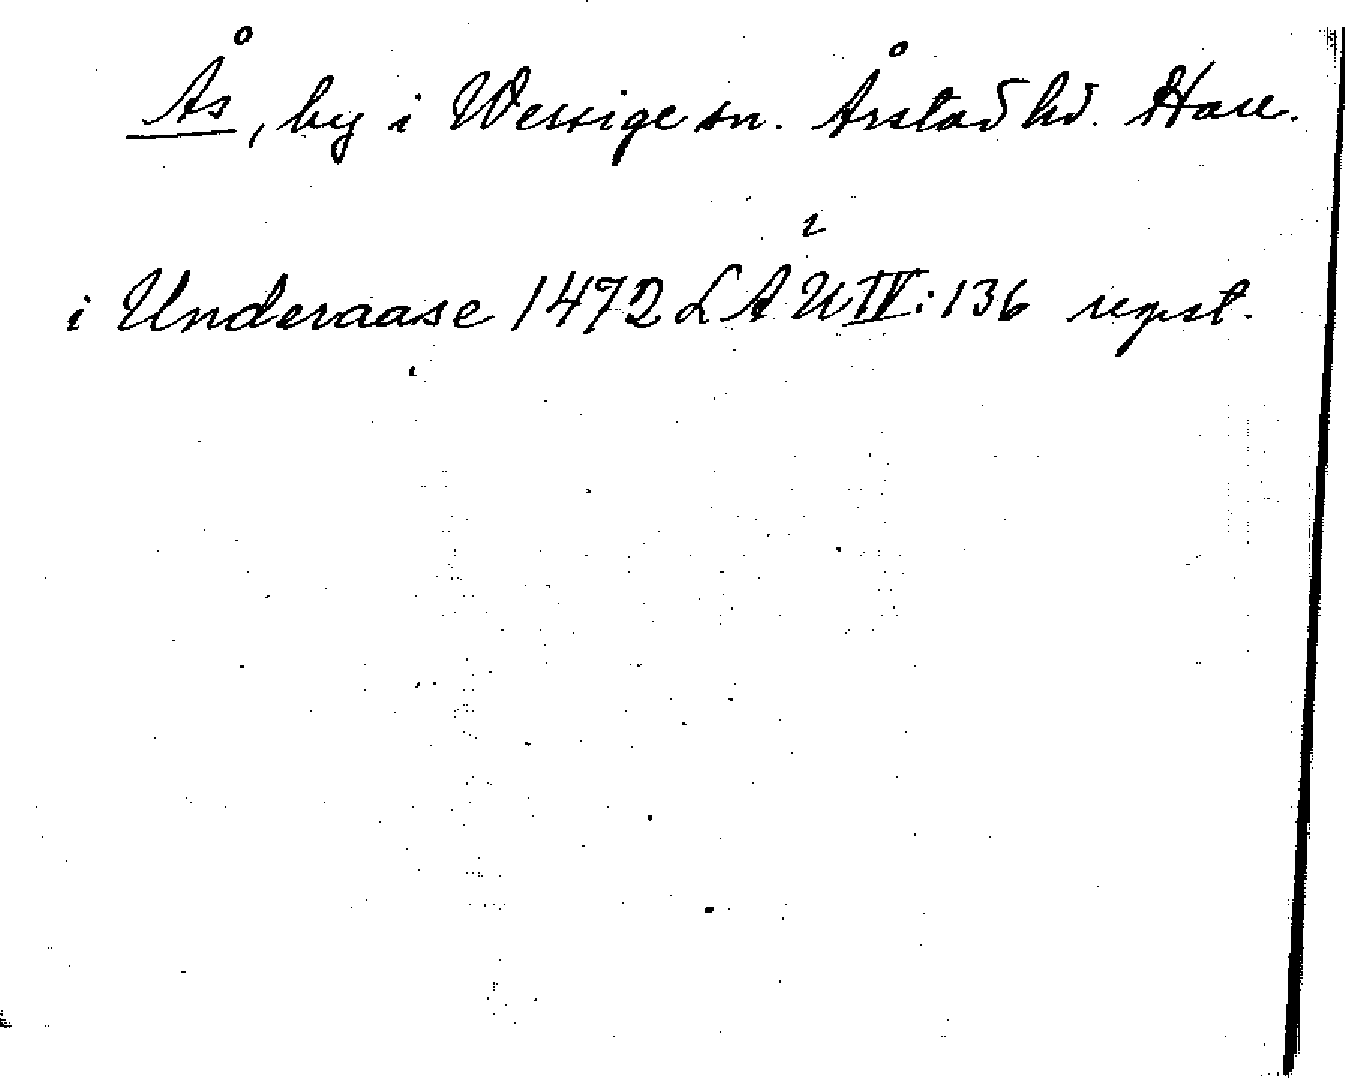 Ås, by i Wessige sn. Årstad hd. Hall.
i Underaase 1472 LÅU IV:136 regest.